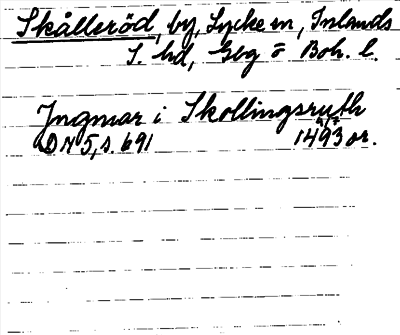 Skålleröd, by, Lycke sn, Inlands
S. hd, Gbg o Boh. l.
Ingmar i Skollingsruth
DN 5, s. 691 1493 or.